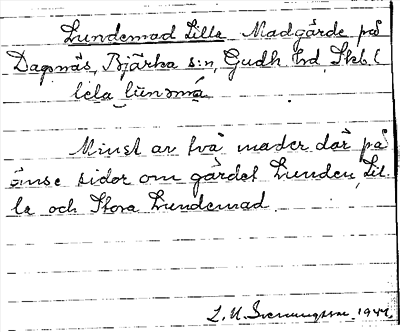 Lundemad Lilla Madgärde på
Dagsnäs, Bjärka s:n, Gudh hd, Skb. l
lela lùnəmá
Minst av två mader där på
ömse sidor om gärdet Lunden, Lil-
la och Stora Lundemad.
L. N. Svenungsson 1944